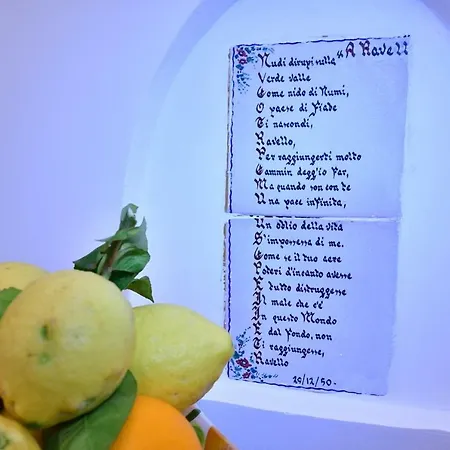 "A Ravell
Nudi dirupi sulla
Verde valle
Come nido di Numi,
O paese di Fiabe
Ti nascondi,
Ravello,
Per raggiungerti molto
Cammin degg'io far,
Ma quando son con te
Una pace infinita,
Un oblio della vita
S'impossessa di me.
Come se il tuo aere
Poteri d'incanto avesse
E tutto distruggesse
Il male che c'è
In questo Mondo
E dal fondo, non
Ti raggiungesse,
Ravello
29/12/50.-